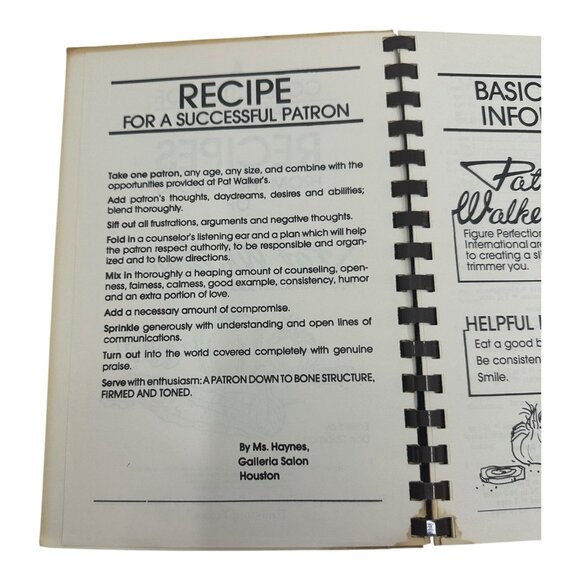 RECIPE
FOR A SUCCESSFUL PATRON
Take one patron, any age, any size, and combine with the
opportunities provided at Pat Walker's.
Add patron's thoughts, daydreams, desires and abilities;
blend thoroughly.
Sift out all frustrations, arguments and negative thoughts.
Fold in a counselor's listening ear and a plan which will help
the patron respect authority, to be responsible and organ-
ized and to follow directions.
Mix in thoroughly a heaping amount of counseling, open-
ness, fairness, calmness, good example, consistency, humor
and an extra portion of love.
Add a necessary amount of compromise.
Sprinkle generously with understanding and open lines of
communications.
Turn out into the world covered completely with genuine
praise.
Serve with enthusiasm: A PATRON DOWN TO BONE STRUCTURE,
FIRMED AND TONED.
By Ms. Haynes,
Galleria Salon
Houston
BASIC
INFO
Pat
Walke
Figure Perfection
International are
to creating a sl
trimmer you.
HELPFUL
Eat a good b
Be consisten
Smile.